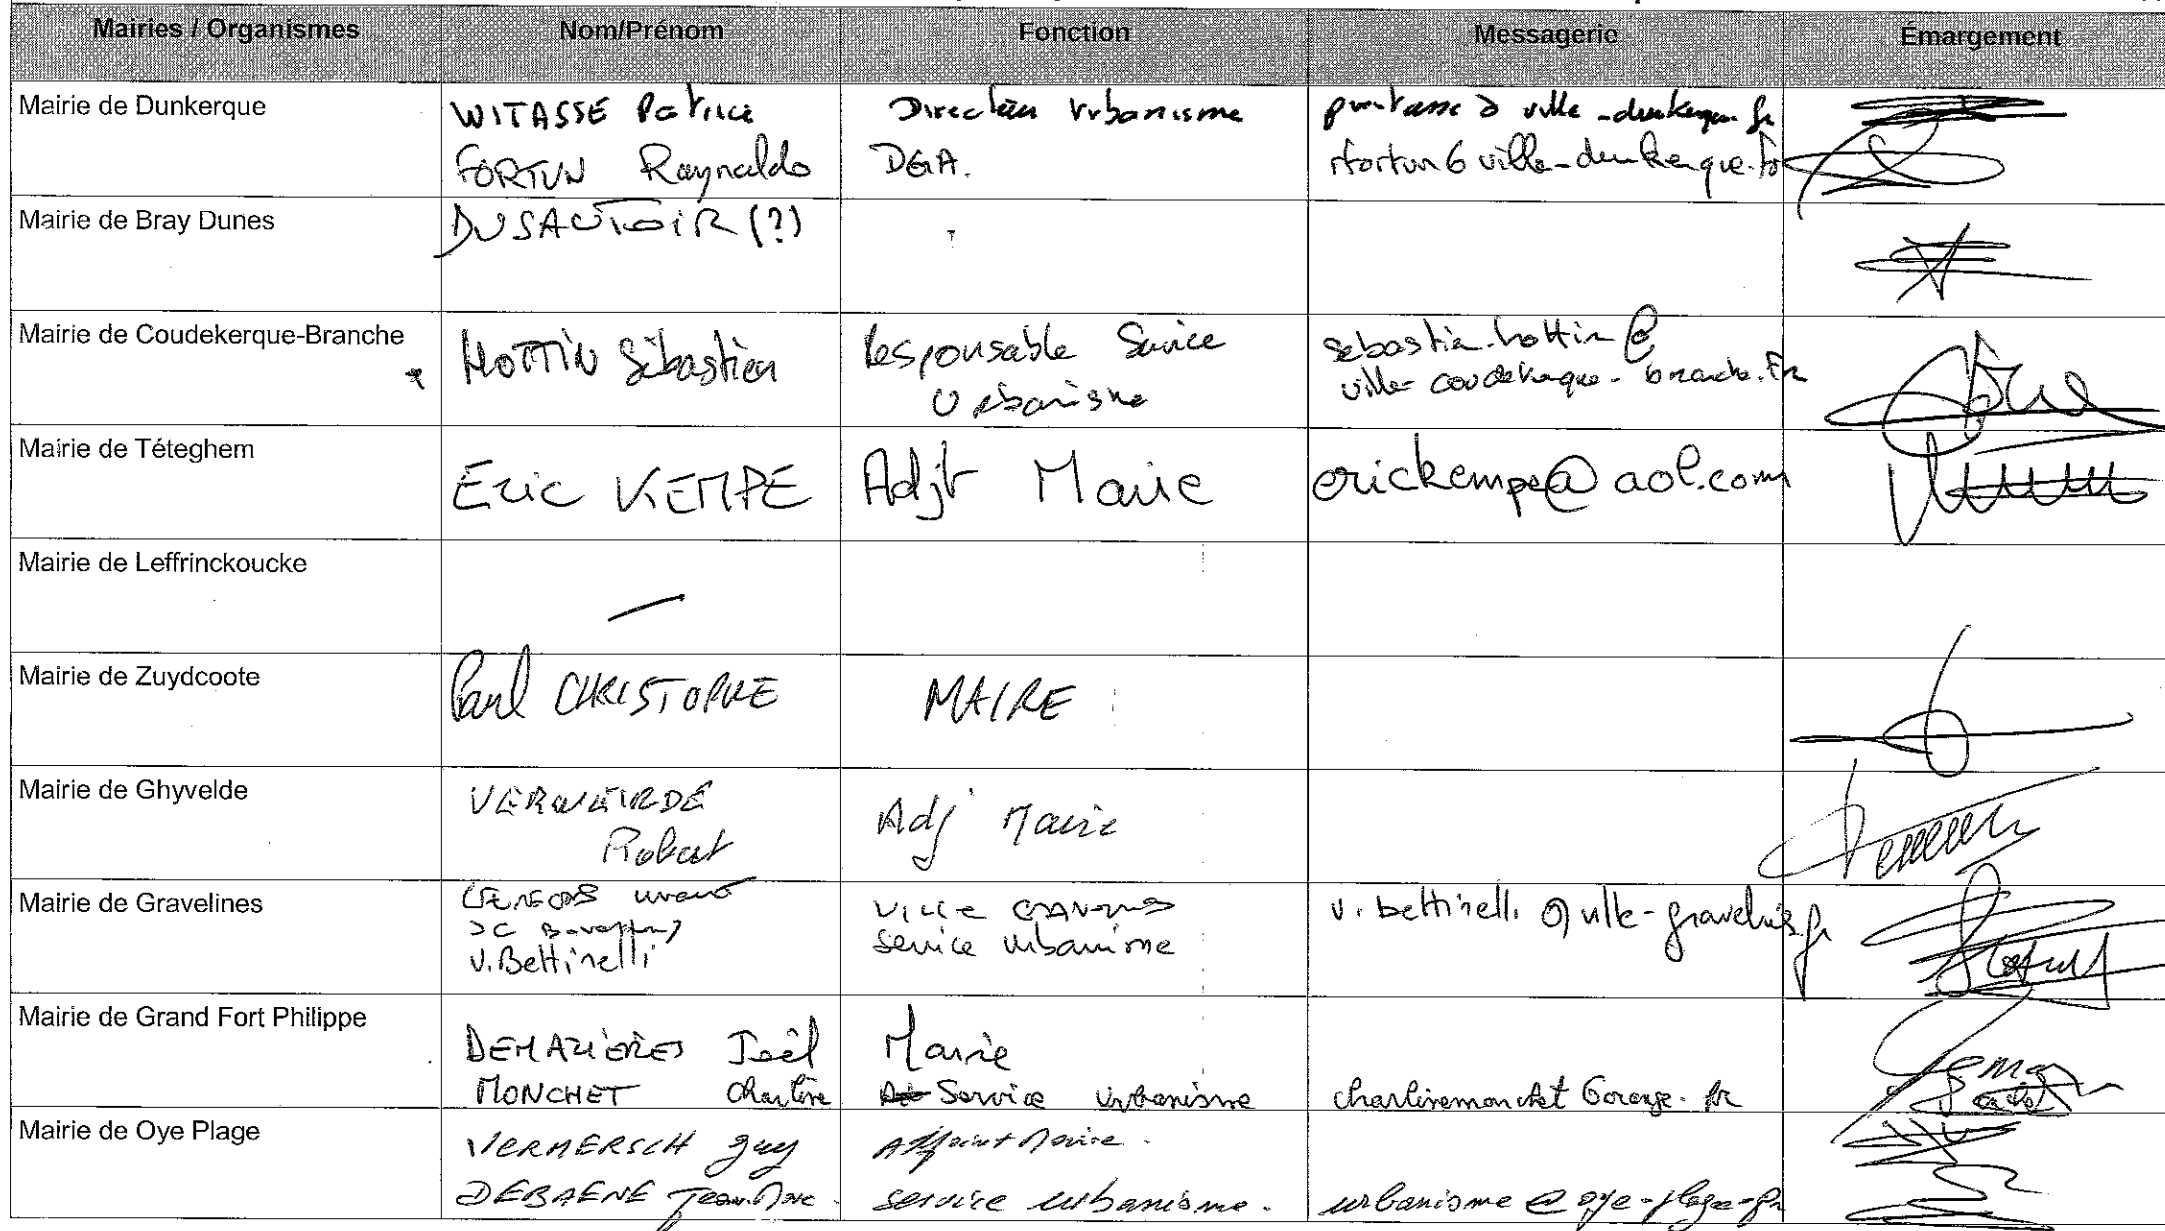 Mairies / Organismes Nom/Prénom Fonction Messagerie Émargement
Mairie de Dunkerque WITASSE Patrice Directeur Urbanisme
FORTUN Raynaldo DGA. rfortun@ville-dunkerque.fr
Mairie de Bray Dunes DUSAUTOIR (?)
Mairie de Coudekerque-Branche HOTTIN Sébastien Responsable Service sebastien.hottin@
Urbanisme ville-coudekerque-branche.fr
Mairie de Téteghem Eric KEMPE Adjt Maire erickempe@aol.com
Mairie de Leffrinckoucke
Mairie de Zuydcoote Paul CHRISTOPHE MAIRE
Mairie de Ghyvelde VERWAIRDE Adj Maire
Robert
Mairie de Gravelines
v. bettinelli @ ville-gravelines.fr
V. Bettinelli service urbanisme
Mairie de Grand Fort Philippe DEMAZIÈRES Joël Maire
MONCHET Charline Service Urbanisme charlinemonchet@orange.fr
Mairie de Oye Plage VERMERSCH guy Adjoint Maire.
DEBAENE Jean Marc. service urbanisme. urbanisme @ oye-plage-fr